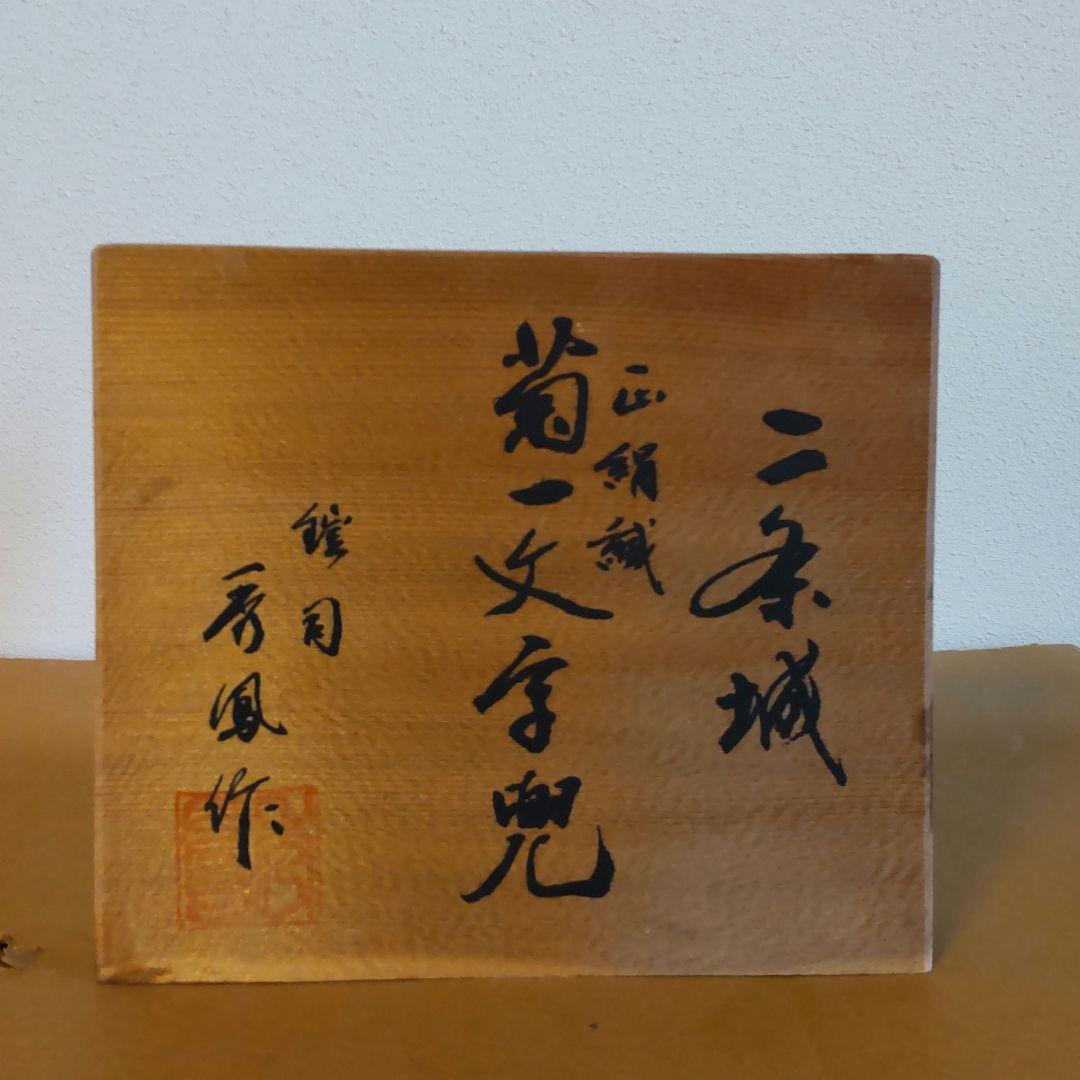 二条城
正絹縅
菊一文字兜
鎧司
秀鳳作